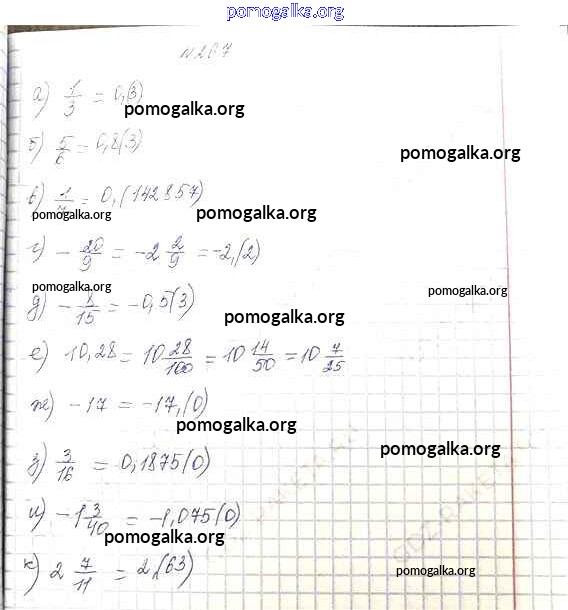 pomogalka.org
N 267
а) 1/3 = 0,(3)
pomogalka.org
б) 5/6 = 0,8(3)
pomogalka.org
в) 1/7 = 0,(142857)
pomogalka.org pomogalka.org
г) - 20/9 = -2 2/9 = -2,(2)
pomogalka.org pomogalka.org
д) - 8/15 = -0,5(3)
pomogalka.org
е) 10,28 = 10 28/100 = 10 14/50 = 10 7/25
ж) -17 = -17,(0)
pomogalka.org
pomogalka.org
з) 3/16 = 0,1875(0)
и) -1 3/40 = -1,075(0)
pomogalka.org
к) 2 7/11 = 2,(63)
pomogalka.org